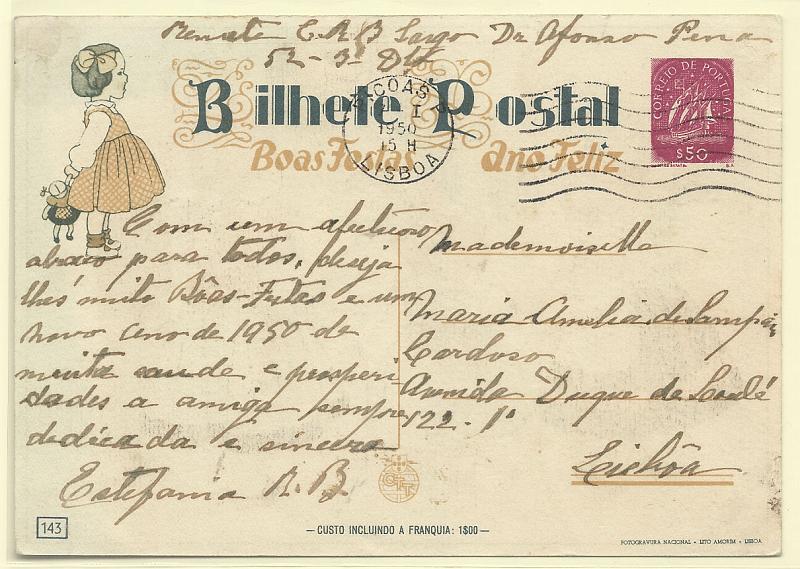 Remete E. R. B Largo Dr. Afonso Pena
52-3º Dtº
Bilhete Postal
Boas Festas ano Feliz
PICOAS
I
1950
15 H
LISBOA
CORREIO DE PORTUGAL
$50
Com um afectuoso
abraço para todos, deseja
lhes muito Bôas-Festas e um
novo ano de 1950 de
muita saude e prosperi
dades a amiga sempre
dedicada e sincera
Estefania R. B.
Mademoiselle
Maria Amelia de Sampaio
Cardoso
Avenida Duque de Loulé
122-1º
Lisbôa
CTT
143
— CUSTO INCLUINDO A FRANQUIA: 1$00 —
FOTOGRAVURA NACIONAL • LITO AMORIM • LISBOA